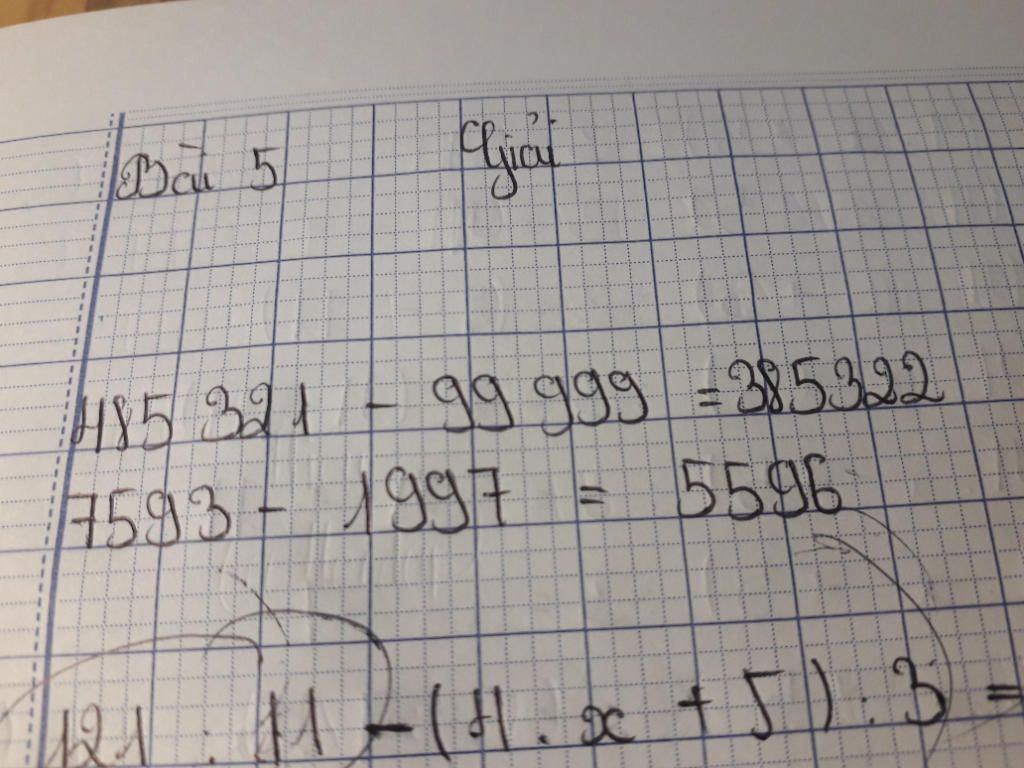 Bài 5 Giải
485 321 - 99 999 = 385322
7593 - 1997 = 5596
121 : 11 - (4 . x + 5) : 3 =